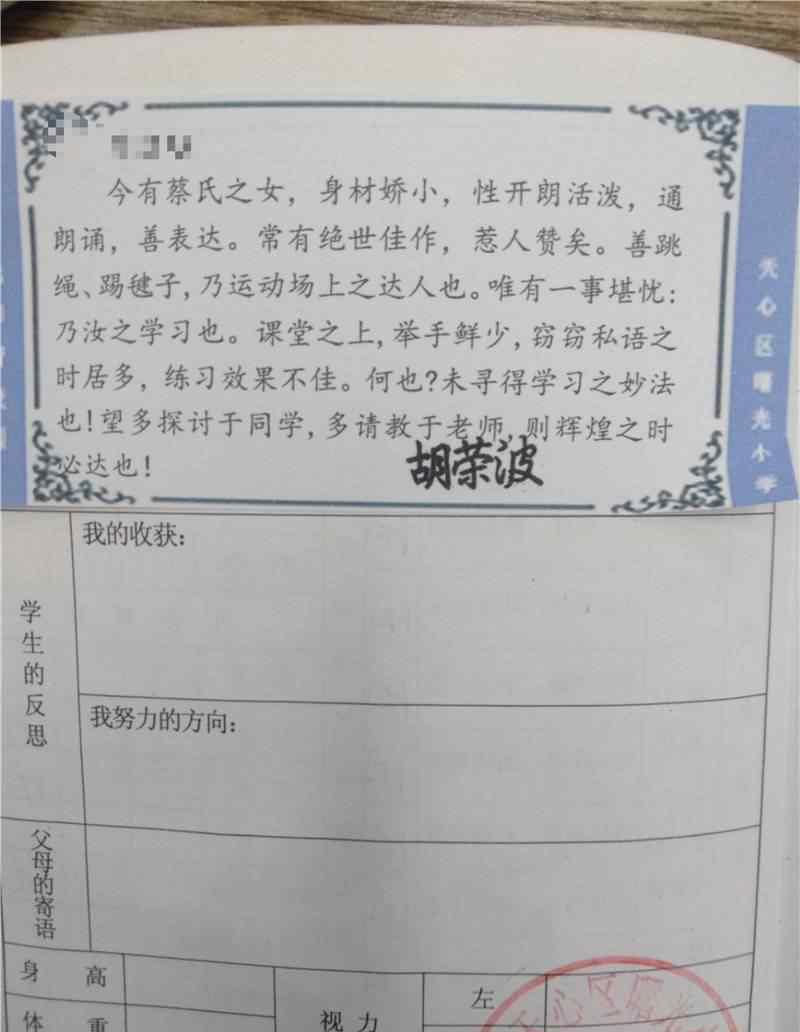 今有蔡氏之女，身材娇小，性开朗活泼，通
朗诵，善表达。常有绝世佳作，惹人赞矣。善跳
绳、踢毽子，乃运动场上之达人也。唯有一事堪忧：
乃汝之学习也。课堂之上，举手鲜少，窃窃私语之
时居多，练习效果不佳。何也？未寻得学习之妙法
也！望多探讨于同学，多请教于老师，则辉煌之时
必达也！
胡荣波
天心区曙光小学
我的收获：
学生的反思
我努力的方向：
父母的寄语
身高
体重
视力
左
天心区曙光